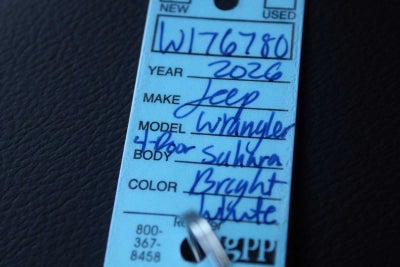 NEW USED
W176780
YEAR 2026
MAKE Jeep
MODEL Wrangler
4 Door
BODY Sahara
COLOR Bright
White
800-
367-
8458
gPP